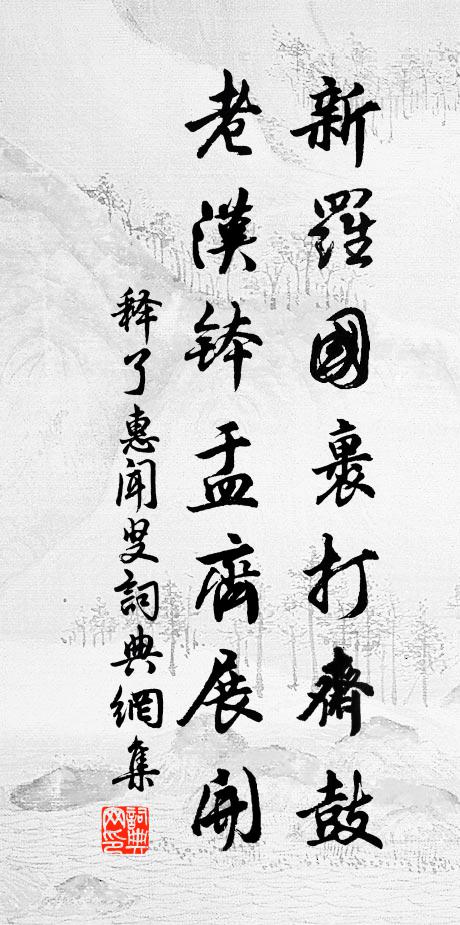 新羅國裹打齋鼓
老漢鉢盂齊展開
释了惠聞叟詞典網集
詞典網印